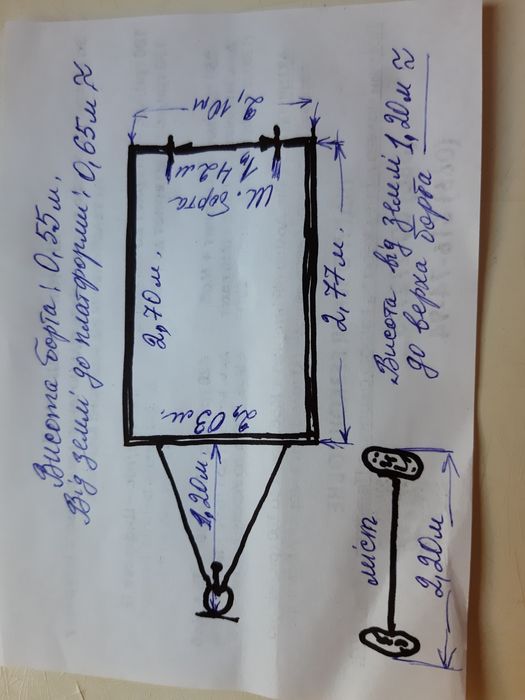 Висота борта: 0,55 м.
Від землі до платформи: 0,65 м ≈
2,10 м
1,42 м
Ш. борта
2,70 м.
2,77 м.
2,03 м.
1,20 м.
Висота від землі 1,20 м ≈
до верха борта
міст
2,20 м